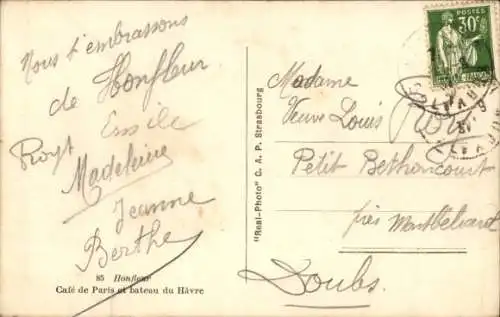 Nous t'embrassons
de Honfleur
Emile
Royt
Madeleine
Jeanne
Berthe
85 Honfleur
Café de Paris et bateau du Hâvre
"Real-Photo" C. A. P. Strasbourg
POSTES
30c
Madame
Veuve Louis
Petit Bethoncourt
près Montbéliard
Doubs.